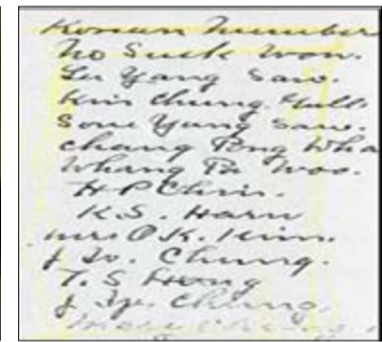 Korean number
No Suck Won.
Lee Yang Saw.
Kim Chung Yull.
Some Yang Saw.
Chang Pong Wha
Whang Pa Woo.
H P Chin.
K.S. Harn
Mrs O.K. Kim.
J. W. Chung.
T. S Hong
J. Chung.